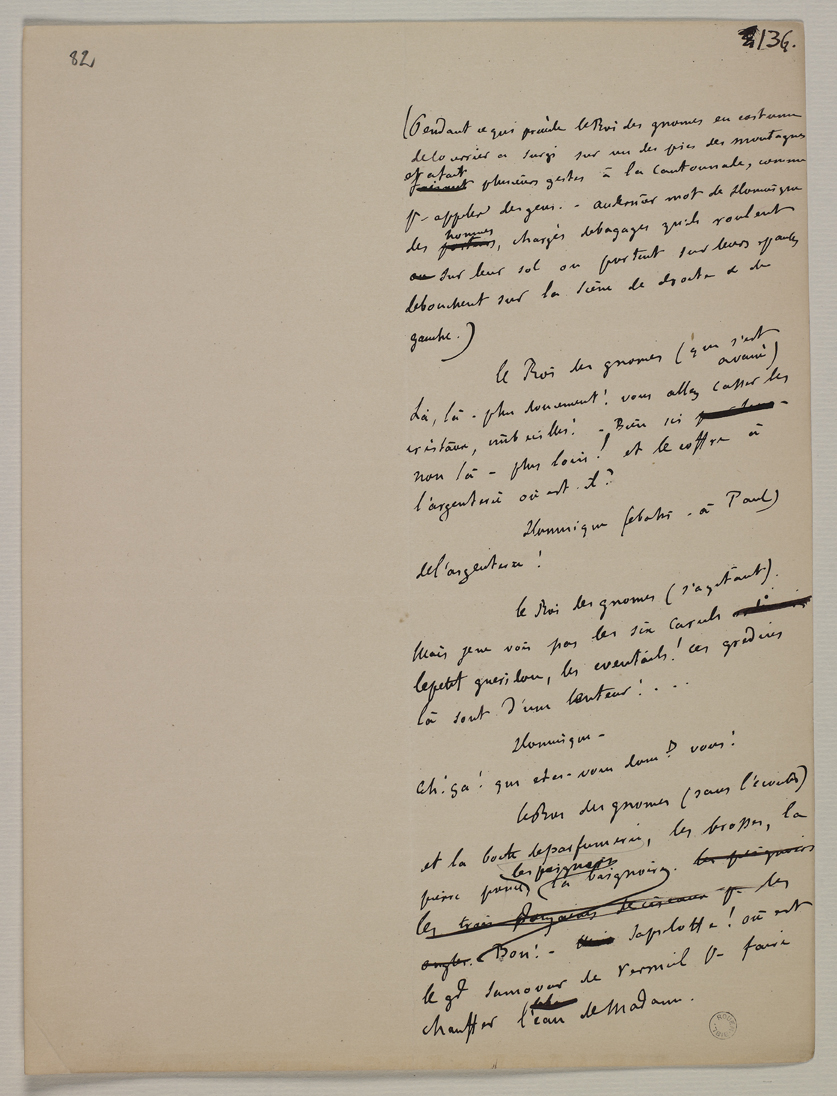 82
136.
(Pendant ce qui précède le Roi des gnomes en costume
de courrier a surgi sur un des pics des montagnes
et a fait
faisant plusieurs gestes à la cantonnade, comme
pr appeler des gens. - au dernier mot de Dominique
hommes
des porteurs, chargés de bagages qu'ils roulent
ou sur leur sol ou portent sur leurs epaules
debouchent sur la Scène de droite & de
gauche.)
le Roi des gnomes (qui s'est
avancé)
Là, là - plus doucement! vous allez casser les
cristaux, imbecilles! - Bien ici
non là - plus loin! et le coffre à
l'argenterie où est-il?
Dominique (ebahi - à Paul)
de l'argenterie!
le Roi des gnomes (s'agitant).
Mais je ne vois pas les six carcels
le petit gueridon, les eventails! ces gredins
là sont d'une lenteur! . . .
Dominique -
Ah! ça! qui etes-vous donc? vous!
le Roi des gnomes (sans l'écouter)
et la boete de parfumerie, les brosses, la
les peignoirs
pierre ponce, la baignoire. les peignoirs
les trois douzaines de ciseaux pr les
ongles. Bon! - Saplotte! où est
le gd Samovar de Vermeil pr faire
chauffer l'eau de Madame.